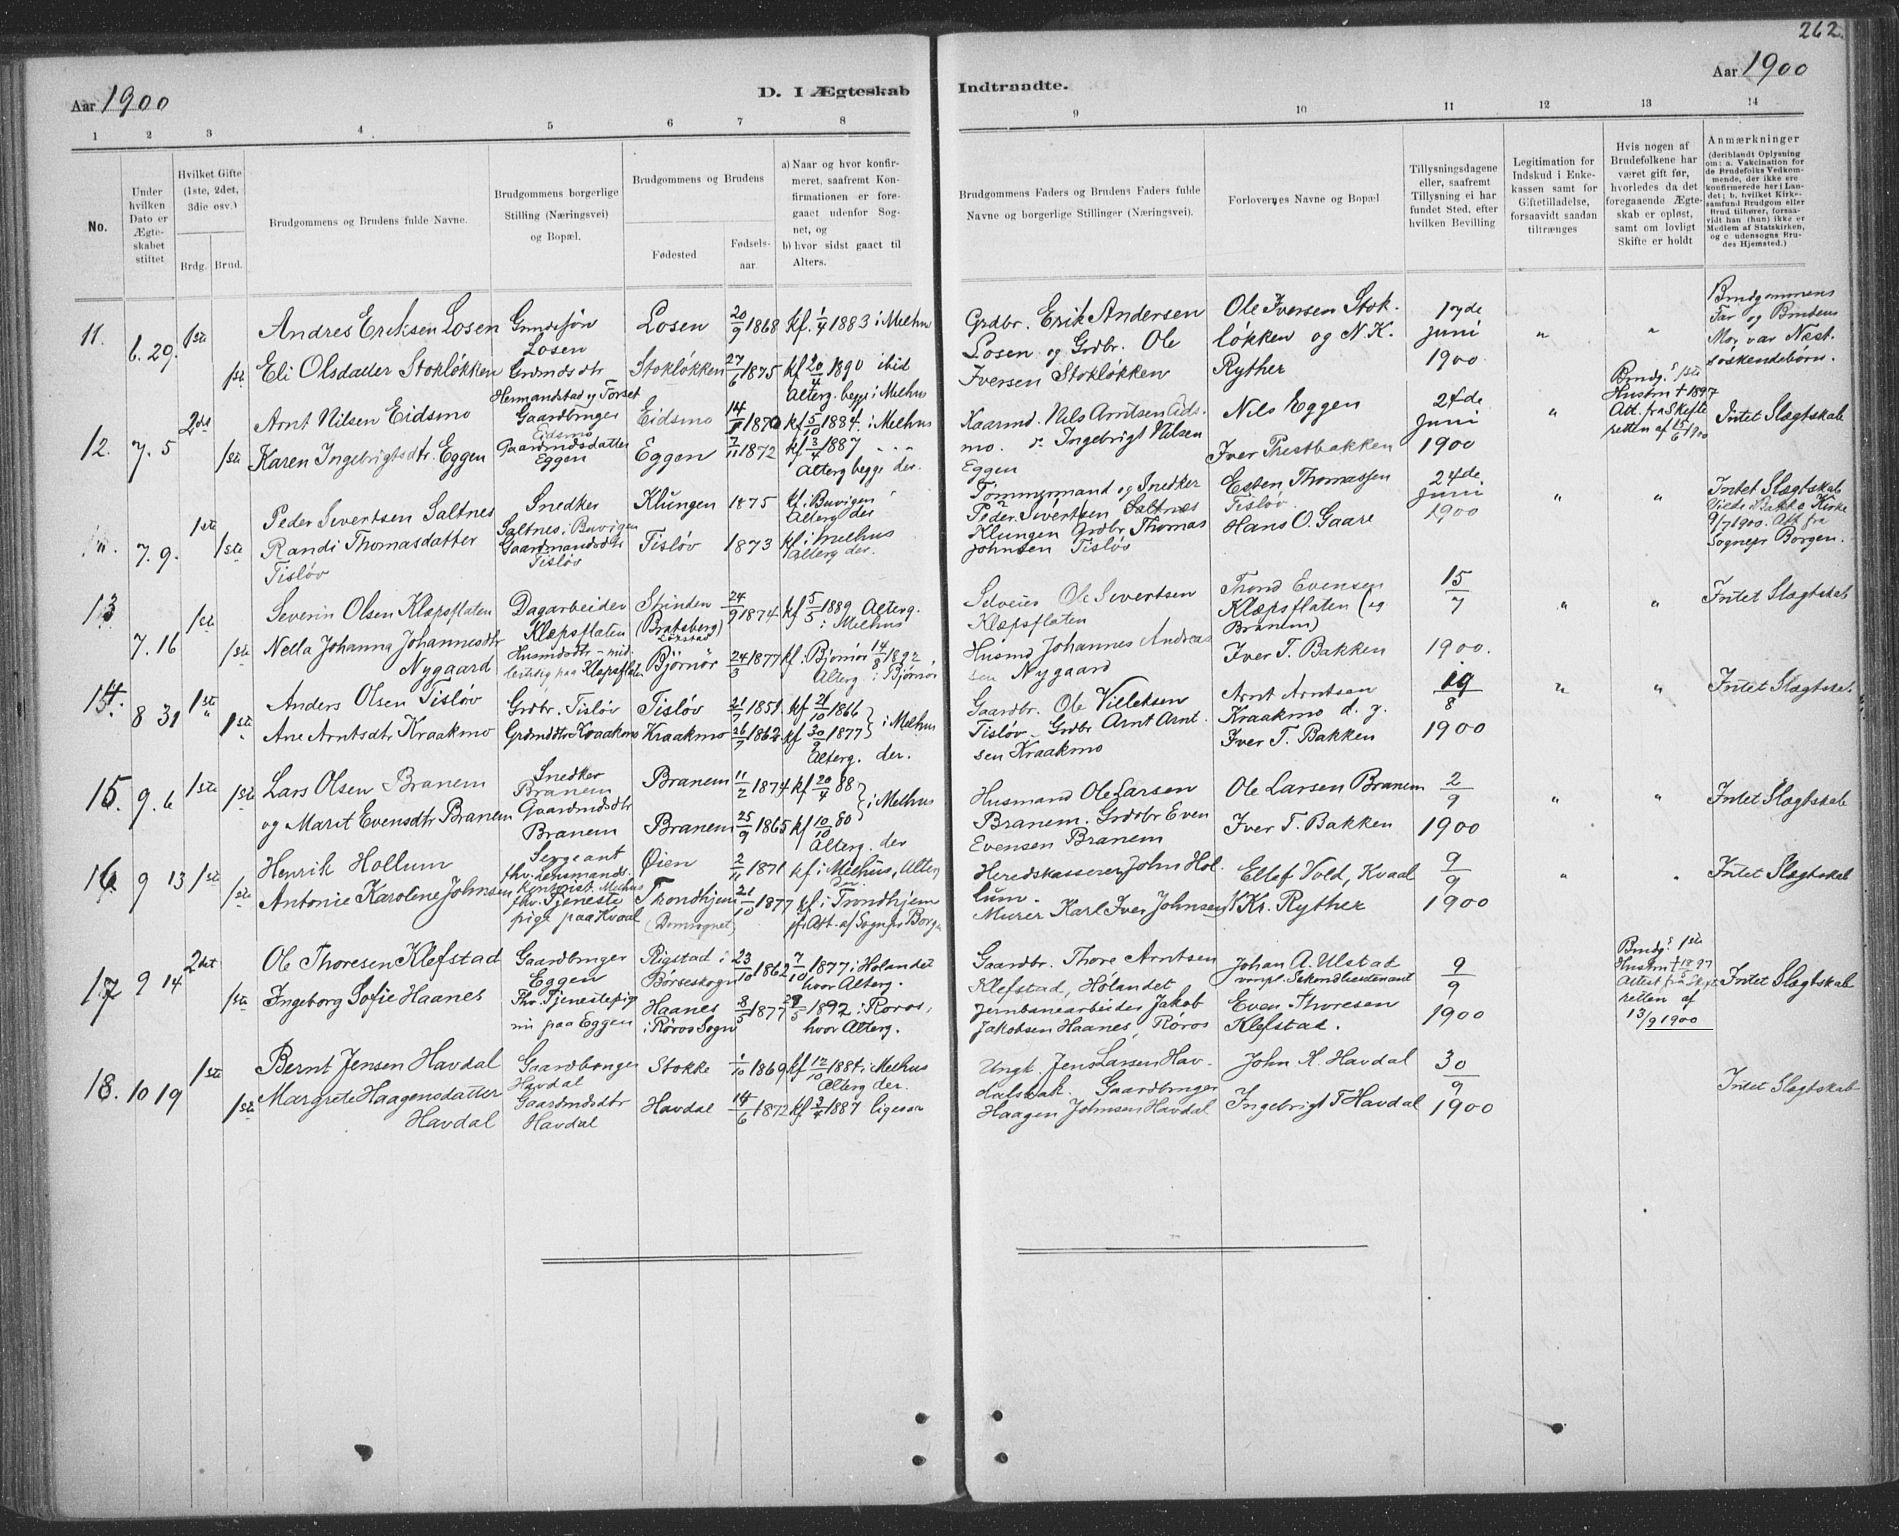 262.
Aar 1900
D. I Ægteskab Indtraadte.
Aar 1900
1 2 3 4 5 6 7 8 9 10 11 12 13 14
No.
Under hvilken Dato er Ægteskabet stiftet
Hvilket Gifte (1ste, 2det, 3die osv.)
Brdg. Brud.
Brudgommens og Brudens fulde Navne.
Brudgommens borgerlige Stilling (Næringsvei) og Bopæl.
Brudgommens og Brudens
Fødested
Fødsels-aar
a) Naar og hvor konfirmeret, saafremt Konfirmationen er foregaaet udenfor Sognet, og
b) hvor sidst gaaet til Alters.
Brudgommens Faders og Brudens Faders fulde Navne og borgerlige Stillinger (Næringsvei).
Forlovernes Navne og Bopæl
Tillysningsdagene eller, saafremt Tillysning ei har fundet Sted, efter hvilken Bevilling
Legitimation for Indskud i Enkekassen samt for Giftetilladelse, forsaavidt saadan tiltrænges
Hvis nogen af Brudefolkene har været gift før, hvorledes da det foregaaende Ægteskab er opløst, samt om lovligt Skifte er holdt
Anmærkninger
(deriblandt Oplysning om: a. Vakcination for de Brudefolks Vedkommende, der ikke ere konfirmerede her i Landet; b. hvilket Kirkesamfund Brudgom eller Brud tilhører, forsaavidt han (hun) ikke er Medlem af Statskirken, og c. udensogns Brudes Hjemsted.)
11. 6. 29. 1ste Andres Eriksen Losen
Losen
Losen 20/9 1868 kf. 1/4 1883 i Melhus
1ste Eli Olsdatter Stokløkken Grdmdsdtr Stokløkken 27/6 1875 kf 20/4 1890 ibid
Alterg. begge i Melhus
Grdbr. Erik Andersen
Losen og Grdbr. Ole
Iversen Stokløkken
Ole Iversen Stok-
løkken og N. K.
Ryther
17de
Juni
1900
" "
Brudgommens
Far og Brudens
Mor var Næst-
søskendebørn.
12. 7. 5 2det Arnt Nilsen Eidsmo Gaardbruger
Eidsmo
Eidsmo 1870 kf 5/10 1884. i Melhus
1ste Karen Ingebrigtsdtr. Eggen Gaardmdsdatter
Eggen
Eggen 7/11 1872 kf 3/4 1887 " "
Alterg begge der.
Kaarmd. Nils Arntsen Eids-
mo. Ingebrigt Nilsen
Eggen
Nils Eggen
24de
Juni
1900
"
Brudgs 1ste
Hustru † 1897
Att. fra Skifte
retten af 15/6 1900
Intet Slægtskab
"". 7. 9. 1ste Peder Sivertsen Saltnes Snedker
Saltnes i Buvigen
Klungen 1875 kf. i Buvigen
Alterg der
1ste Randi Thomasdatter
Tisløv
Gaardmandsdtr
Tisløv
Tisløv 1873 kf i Melhus
Alterg der.
Tømmermand og Snedker
Peder Sivertsen Saltnes
Klungen Grdbr. Thomas
Johnsen Tisløv
Esten Thomassen
Tisløv
Hans O. Gaare
24de
Juni
1900
" "
Intet Slægtskab
Viede i Bakke Kirke
9/7 1900. Att fra
Sognepr Borgen.
13 7. 16 1ste Severin Olsen Klæpsflaten Dagarbeider
Klæpsflaten
Strinden
(Bratsberg)
24/9 1874 kf 5/5 1889 Alterg.
i Melhus
1ste Nella Johanna Johannesdtr
Nygaard
Husmdsdtr – mid-
lertidig paa Klæpsflaten
Bjørnør 24/3 1877 kf. Bjørnør 14/8 1892
Alterg i Bjørnør
Selveier Ole Sivertsen
Klæpsflaten
Husmd Johannes Andrea-
sen Nygaard
Trond Evensen
Klæpsflaten (eg
Branem)
Iver T. Bakken
15/7
1900.
" "
Intet Slægtskab
14. 8 31 1ste Anders Olsen Tisløv Grdbr. Tisløv Tisløv 21/7 1851 kf 21/10 1866
1ste Ane Arntsdtr Kraakmo Grdmdtr Kraakmo Kraakmo 26/7 1862 kf 30/9 1877 i Melhus
Alterg. der.
Gaardbr. Ole Villeksen
Tisløv – Grdbr Arnt Arnt-
sen Kraakmo
Arnt Arntsen
Kraakmo d. y.
Iver T. Bakken
19/8
1900
" "
Intet Slægtskab
15. 9. 6 1ste Lars Olsen Branem Snedker
Branem
Branem 11/2 1874 kf 20/4 88
1ste og Marit Evensdtr Branem Gaardmdsdtr
Branem
Branem 25/9 1865 kf 10/10 80 i Melhus
Alterg. der
Husmand Ole Larsen
Branem. Grdbr Even
Evensen Branem
Ole Larsen Branem
Iver T. Bakken
2/9
1900
" "
Intet Slægtskab
16. 9 13 1ste Henrik Hollum Sergeant
fhv. Lensmands
kontorist, Melhus
Øien 2/11 1871 kf i Melhus, Alterg
1ste Antonie Karoline Johnsen fhv. Tjeneste
pige paa Kvaal
Trondhjem
(Domsognet)
21/10 1877 kf. i Trondhjem
pf. Att. af Sognepr Borgen
Heredskasserer John Hol-
lum.
Murer Karl Iver Johnsen
Ellef Vold, Kvaal
N Kr. Ryther
9/9
1900
" "
Intet Slægtskab
17 9 14 2det Ole Thoresen Klefstad Gaardbruger
Eggen
Rigstad i
Børseskogn
23/10 1862 7/10 1877 i Hølandet
hvor Alterg.
1ste Ingeborg Sofie Haanes Fhv. Tjenestepige
nu paa Eggen
Haanes
i Røros Sogn
8/5 1877 29/5 1892 i Røros,
hvor Alterg.
Gaardbr. Thore Arntsen
Klefstad, Hølandet
Jernbanearbeider Jakob
Jakobsen Haanes, Røros
Johan A. Ulstad
vmpl. Sekondlieutenant
Even Thoresen
Klefstad.
9/9
1900
Brudgs 1ste
Hustru † 1897
Attest fra Skifte
retten af
13/9 1900
Intet Slægtskab
18. 10 19 1ste Bernt Jensen Havdal Gaardbruger
Havdal
Stokke 1/10 1869 kf 12/10 1884 i Melhus
Alterg der.
1ste Margrete Haagensdatter
Havdal
Gaardmdsdtr
Havdal
Havdal 14/6 1872 kf 3/4 1887 ligesaa
Ungk. Jens Larsen Hav-
dalsbak. Gaardbruger
Haagen Johnsen Havdal
John K. Havdal
Ingebrigt T Havdal
30/9
1900
Intet Slægtskab